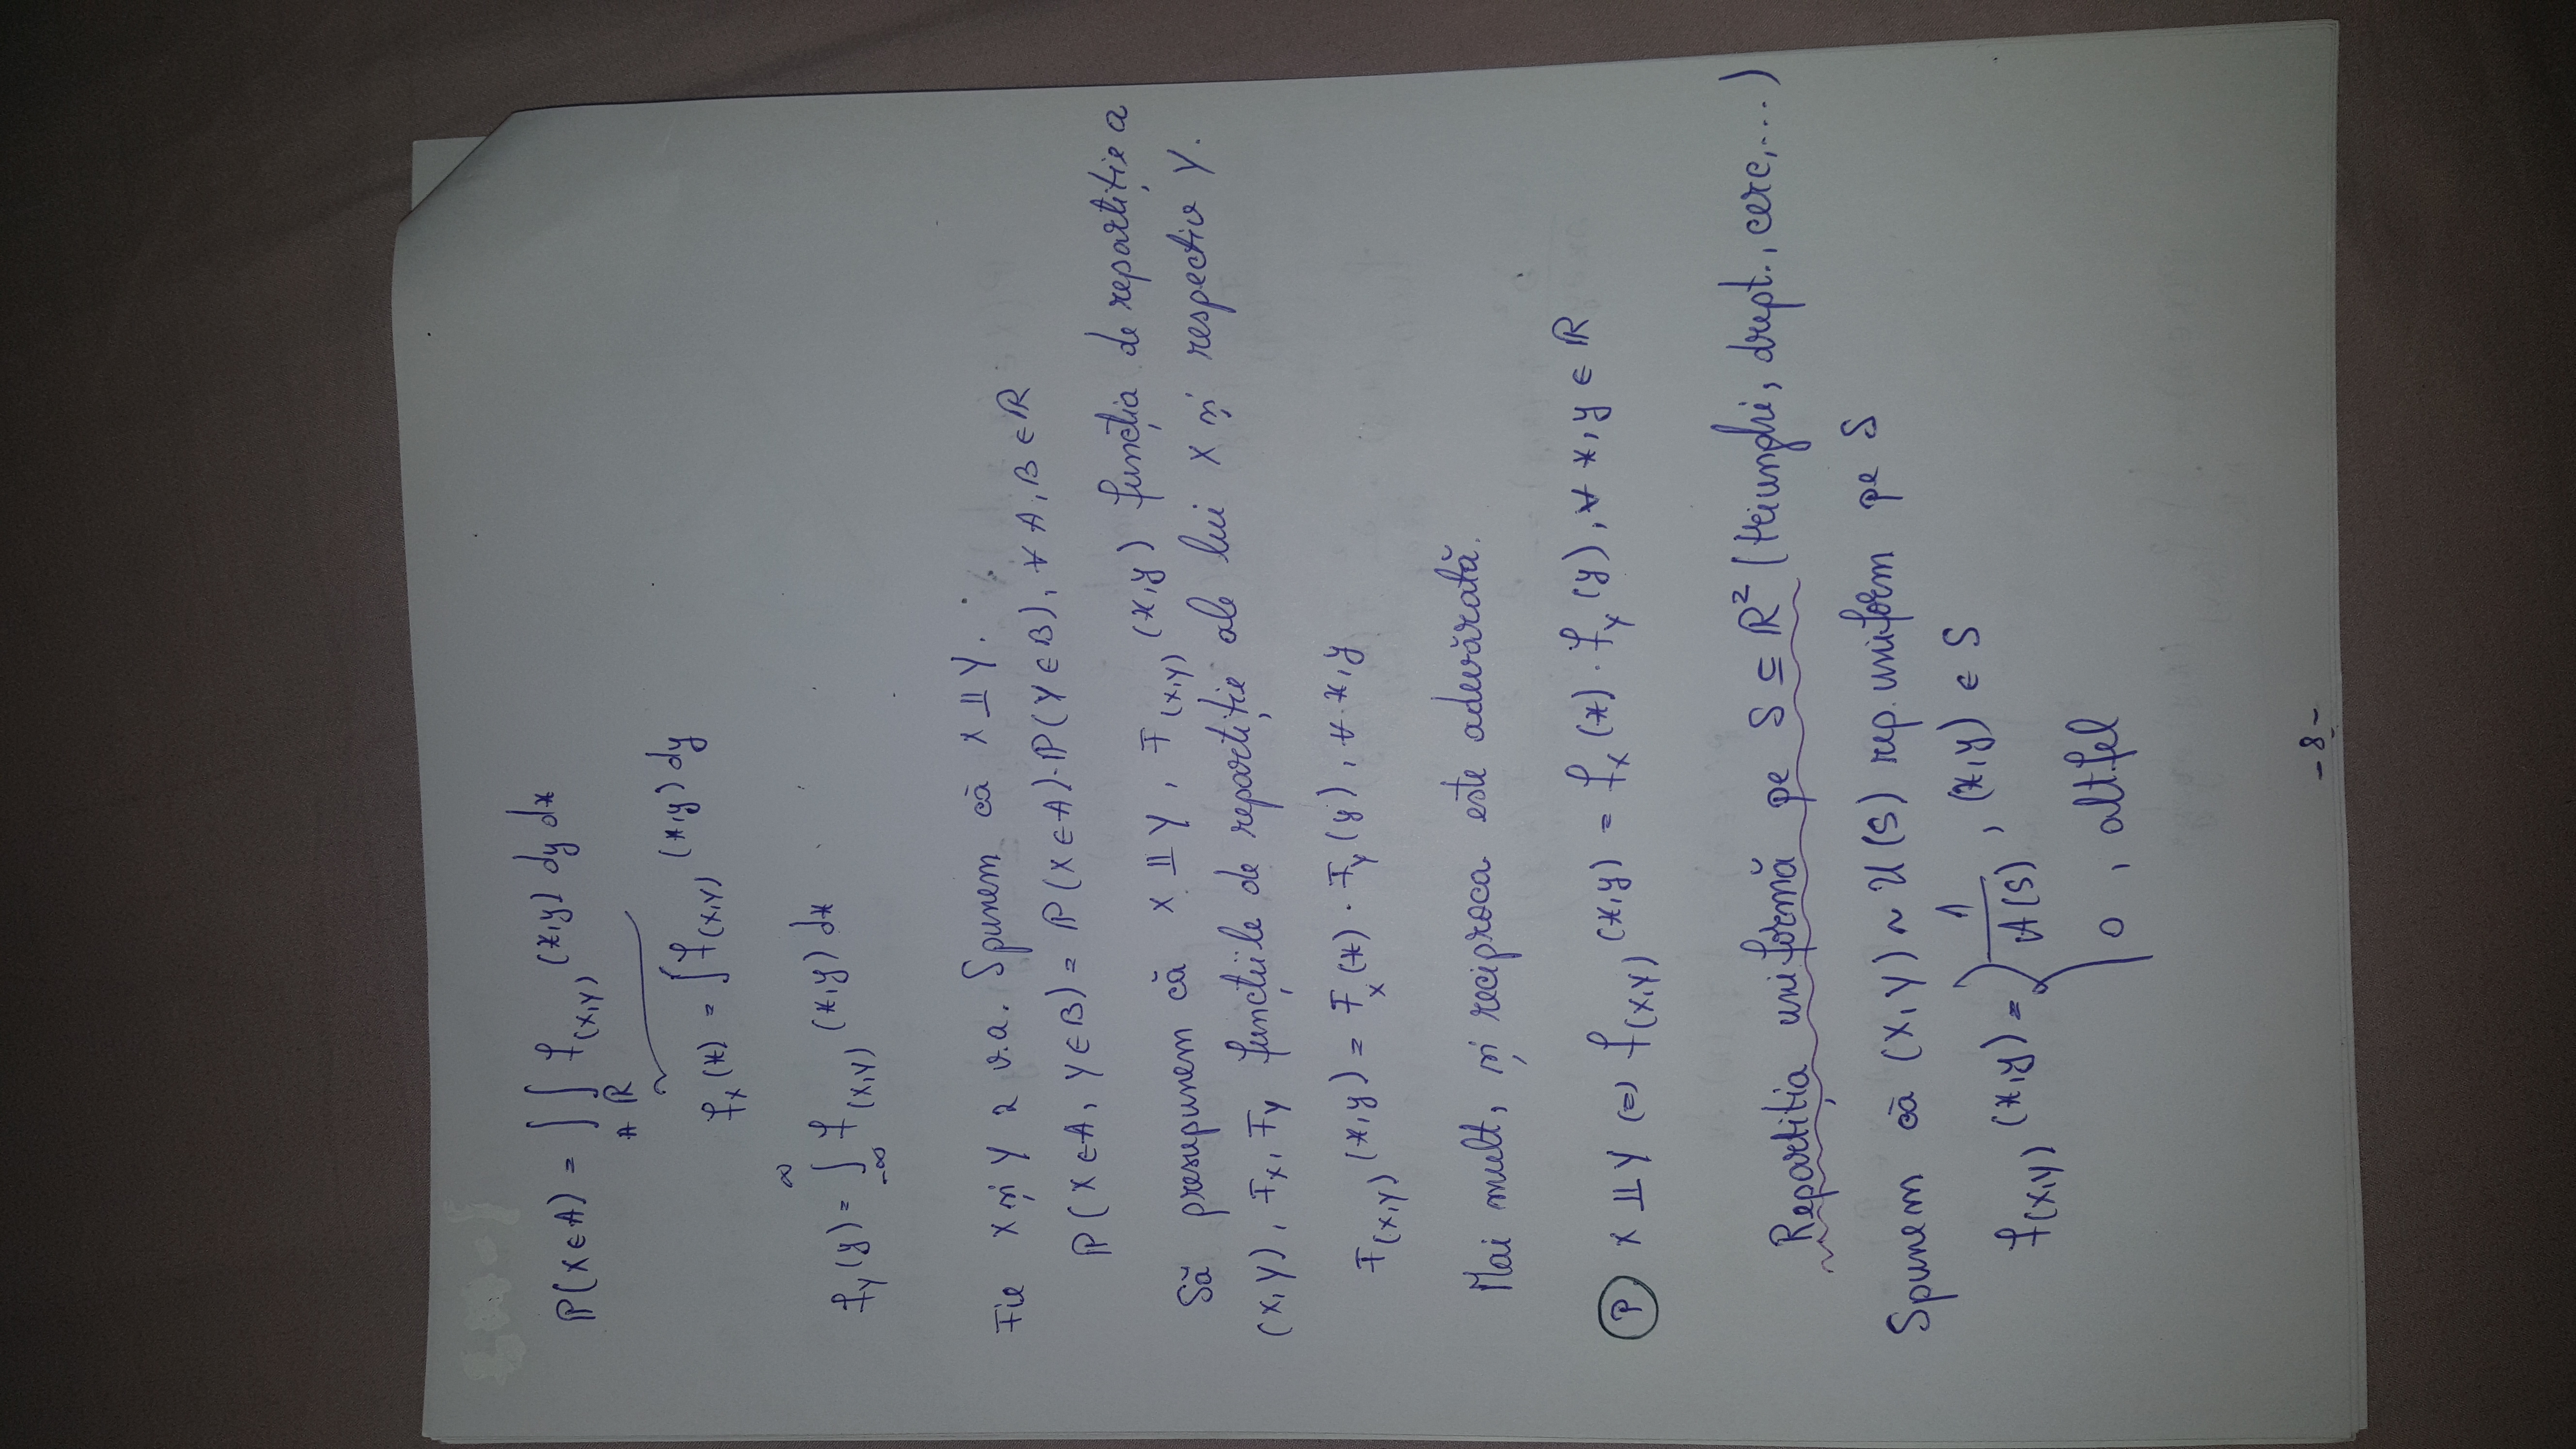 ℙ(X∈A) = ∫_A ∫_ℝ f_(X,Y) (x,y) dy dx
f_X(x) = ∫ f_(X,Y) (x,y) dy
f_Y(y) = ∫_{-∞}^{∞} f_(X,Y) (x,y) dx
Fie X și Y 2 v.a. Spunem că X ⫫ Y.
ℙ(X∈A, Y∈B) = ℙ(X∈A)·ℙ(Y∈B), ∀ A, B ∈ ℝ
Să presupunem că X ⫫ Y, F_(X,Y) (x,y) funcția de repartiție a
(X,Y), F_X, F_Y funcțiile de repartiție ale lui X și respectiv Y.
F_(X,Y) (x,y) = F_X(x) · F_Y(y), ∀ x,y
Mai mult, și reciproca este adevărată.
Ⓟ X ⫫ Y (=) f_(X,Y) (x,y) = f_X(x) · f_Y(y), ∀ x,y ∈ ℝ
Repartiția uniformă pe S ⊆ ℝ² (triunghi, drept., cerc,...)
Spunem că (X,Y) ~ U(S) rep. uniform pe S
f_(X,Y) (x,y) = { 1/A(S) , (x,y) ∈ S
0 , altfel
- 8 -